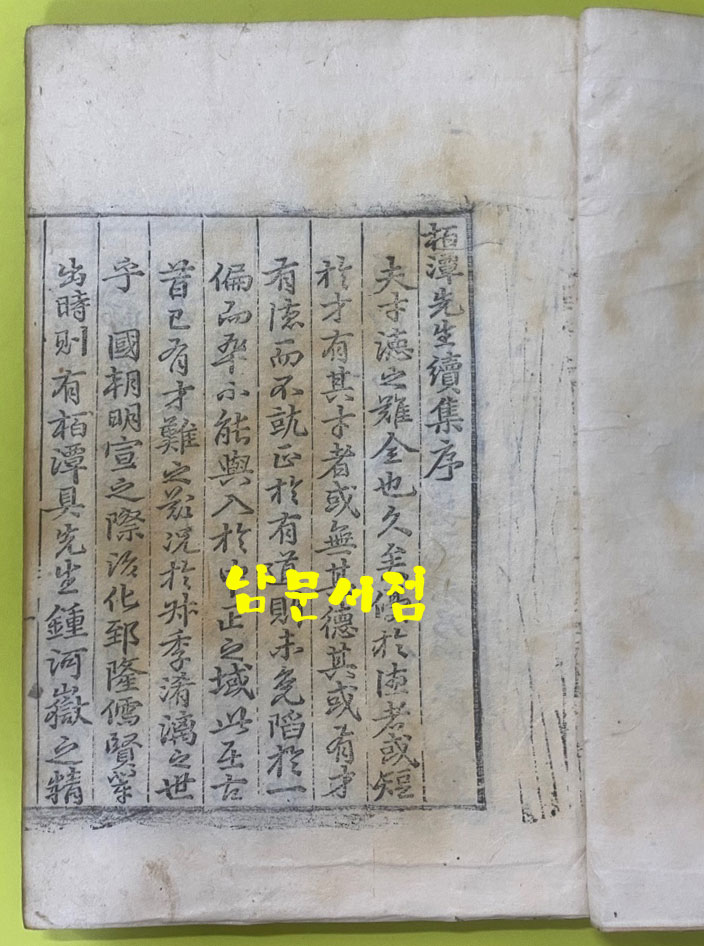 栢潭先生續集序
夫才德之難全也久矣優於德者或短
於才有其才者或無其德其或有才
有德而不就正於有道則未免陷於一
偏而卒不能與入於中正之域此至古
昔已有才難之歎況於叔季淆漓之世
乎 國朝明宣之際治化郅隆儒賢輩
出時則有栢潭具先生鍾河嶽之精
남문서점